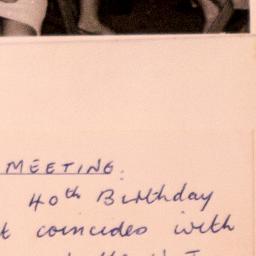 MEETING:
40th Birthday
t coincides with